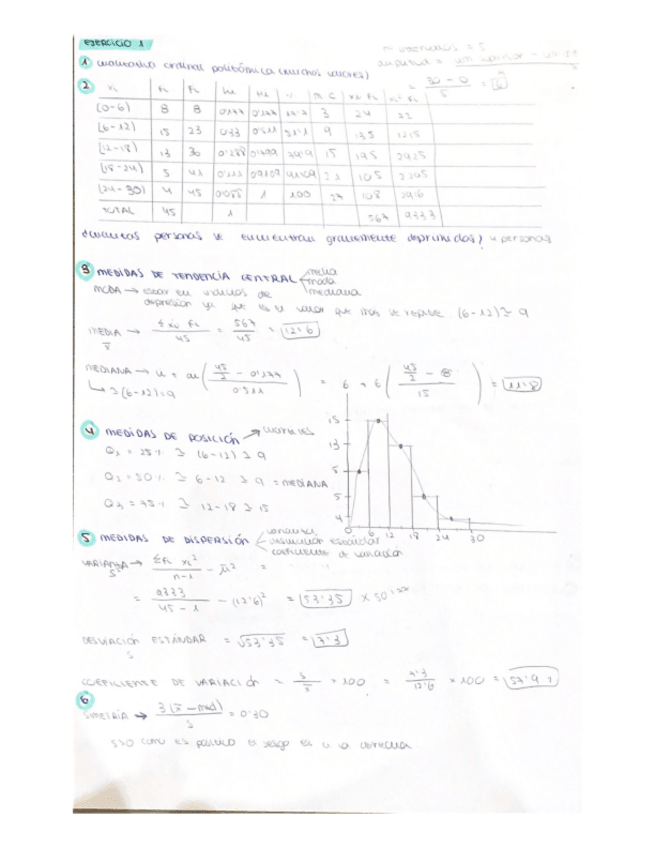 EJERCICIO 1
nº intervalos = 5
amplitud =
= 30 - 0 / 5 = 6
1 cualitativa ordinal politómica (muchos valores)
2 xi fi Fi hi Hi % m.C xi·fi xi²·fi
[0-6) 8 8 0'177 0'177 17'7 3 24 72
[6-12) 15 23 0'33 0'511 51'1 9 135 1215
[12-18) 13 36 0'288 0'799 79'9 15 195 2925
[18-24) 5 41 0'111 0'9109 91'09 21 105 2205
[24-30) 4 45 0'088 1 100 27 108 2916
TOTAL 45 1 567 9333
¿Cuantas personas se encuentran gravemente deprimidas? 4 personas
3 MEDIDAS DE TENDENCIA CENTRAL media
moda
mediana
MODA → estar en niveles de
depresión ya que es el valor que más se repite. (6-12) ≃ 9
MEDIA → Σ xi fi / 45 = 567 / 45 = 12'6
x̄
MEDIANA → Li + ai ( 45/2 - 0'177 / 0'511 ) = 6 + 6 ( 45/2 - 8 / 15 ) = 11'8
↳ ≃ (6-12) = 9
4 MEDIDAS DE POSICIÓN → cuartiles
Q1 = 25% ≃ (6-12) ≃ 9
Q2 = 50% ≃ 6-12 ≃ 9 = MEDIANA
Q3 = 75% ≃ 12-18 ≃ 15
15
13
8
5
4
0 6 12 18 24 30
5 MEDIDAS DE DISPERSIÓN varianza
desviación estándar
coeficiente de variación
VARIANZA → Σ fi xi² / n-1 - x̄² =
S²
= 9333 / 45 - 1 - (12'6)² = 53'35
DESVIACIÓN ESTÁNDAR = √53'35 = 7'3
s
COEFICIENTE DE VARIACIÓN = s / x̄ × 100 = 7'3 / 12'6 × 100 = 57'9 %
6
SIMETRÍA → 3 (x̄ - med) / s = 0'30
como es positivo el sesgo es a la derecha.